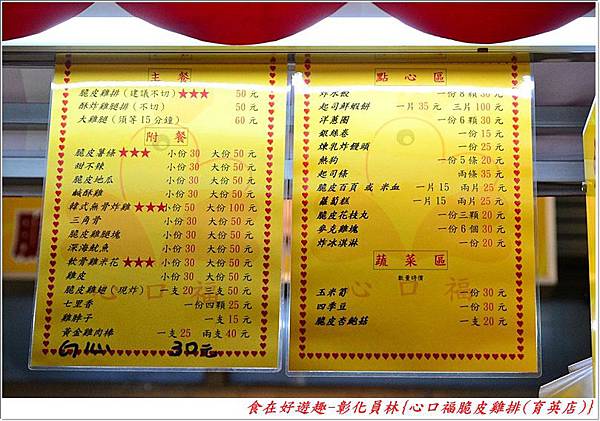 主餐
脆皮雞排(建議不切)★★★ 50元
酥炸雞腿排(不切) 50元
大雞腿(須等15分鐘) 60元
附餐
脆皮薯條★★★ 小份30 大份50元
甜不辣 小份30 大份50元
脆皮地瓜 小份30 大份50元
鹹酥雞 小份30 大份50元
韓式無骨炸雞★★★小份50 大份100元
三角骨 小份30 大份50元
脆皮雞腿塊 小份30 大份50元
深海魷魚 小份30 大份50元
軟骨雞米花★★★ 小份30 大份50元
雞皮 小份30 大份50元
脆皮雞翅(現炸) 一支20 三支50元
七里香 一份四顆25元
雞脖子 一支15元
黃金雞肉棒 一支25 兩支40元
30元
點心區
炸水餃 一份8顆30元
起司鮮蝦餅 一片35元 三片100元
洋蔥圈 一份6顆30元
銀絲卷 一份15元
煉乳炸饅頭 一份25元
熱狗 一份5條20元
起司條 兩條35元
脆皮百頁 或 米血 一片15 兩片25元
蘿蔔糕 一片15 兩片25元
脆皮花枝丸 一份三顆20元
麥克雞塊 一份6個30元
炸冰淇淋 一份20元
蔬菜區
數量時價
玉米筍 一份30元
四季豆 一份30元
脆皮杏鮑菇 一支20元
心口福
心口福
食在好遊趣-彰化員林{心口福脆皮雞排(育英店)}